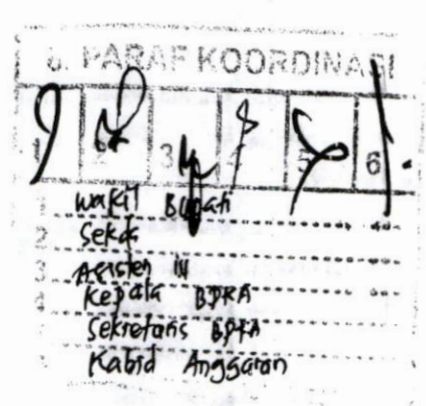 6. PARAF KOORDINASI
1 2 3 4 5 6
1 Wakil Bupati
2 Sekda
3 Asisten III
4 Kepala BPKA
5 Sekretaris BPKA
6 Kabid Anggaran